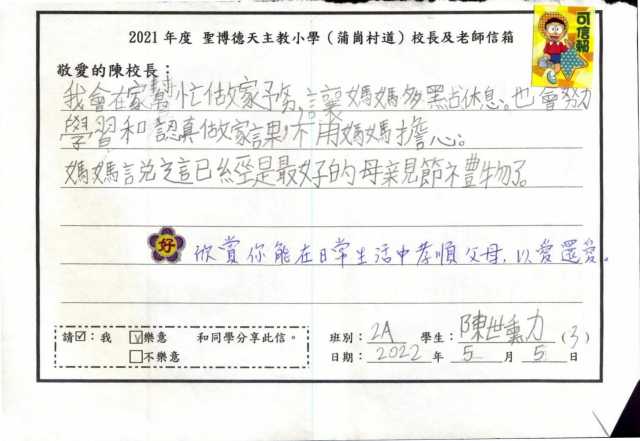 2021 年度 聖博德天主教小學（蒲崗村道）校長及老師信箱
可信賴
敬愛的陳校長：
我會在家幫忙做家務，讓媽媽多點休息。也會努力
學習和認真做家課，不用媽媽擔心。
媽媽說這已經是最好的母親節禮物了。
好 欣賞你能在日常生活中孝順父母，以愛還愛。
請☑：我 ☑樂意 和同學分享此信。
□不樂意
班別：2A 學生：陳世勳 (3)
日期：2022 年 5 月 5 日